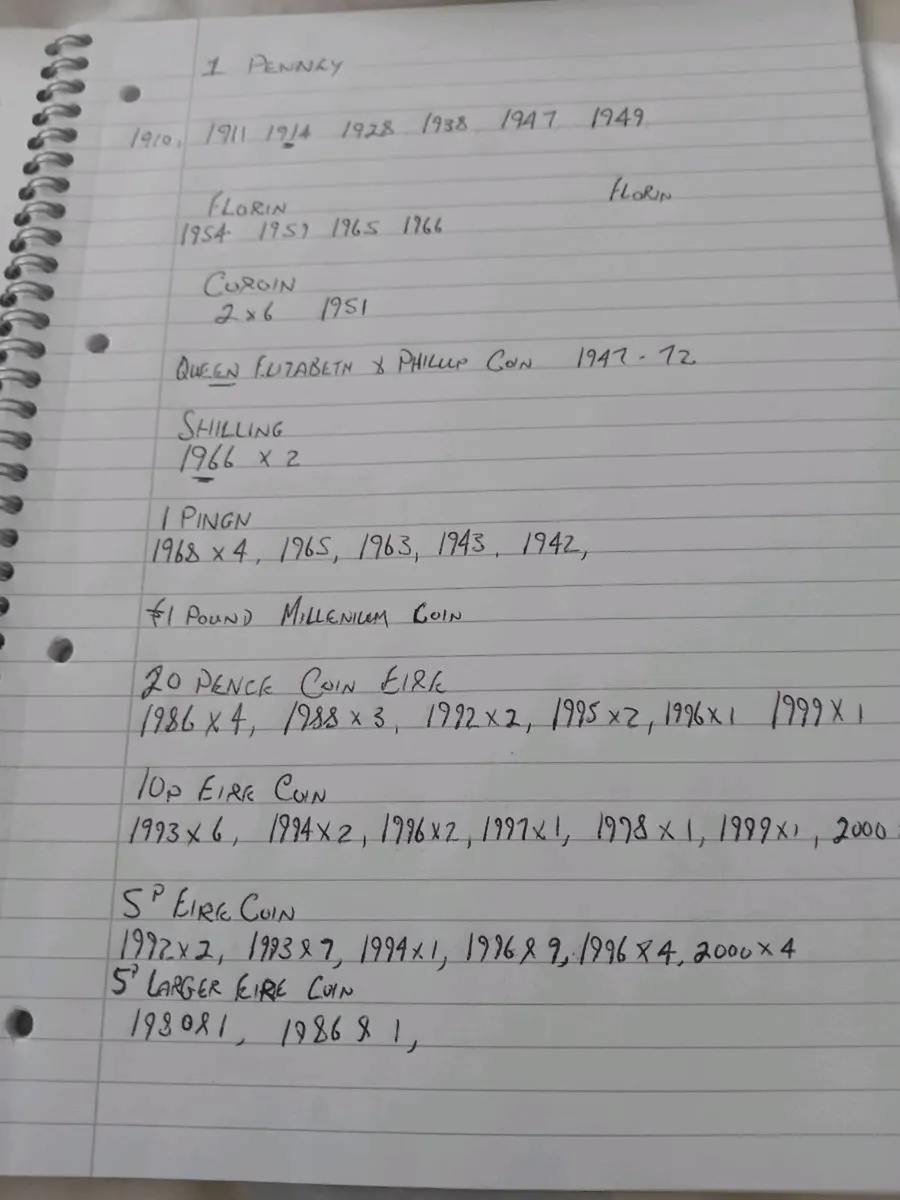 1 PENNEY
1910, 1911 1914 1928 1938 1947 1949
FLORIN FLORIN
1954 1959 1965 1966
CUROIN
2 x 6 1951
QUEEN ELIZABETH & PHILLIP COIN 1947 - 72
SHILLING
1966 x 2
1 PINGN
1968 x 4, 1965, 1963, 1943, 1942,
£1 POUND MILLENIUM COIN
20 PENCE COIN EIRE
1986 x 4, 1988 x 3, 1992 x 2, 1995 x 2, 1996 x 1 1999 x 1
10P EIRE COIN
1993 x 6, 1994 x 2, 1996 x 2, 1997 x 1, 1998 x 1, 1999 x 1, 2000
5P EIRE COIN
1992 x 2, 1993 & 7, 1994 x 1, 1996 & 9, 1996 x 4, 2000 x 4
5P LARGER EIRE COIN
1980 & 1, 1986 & 1,